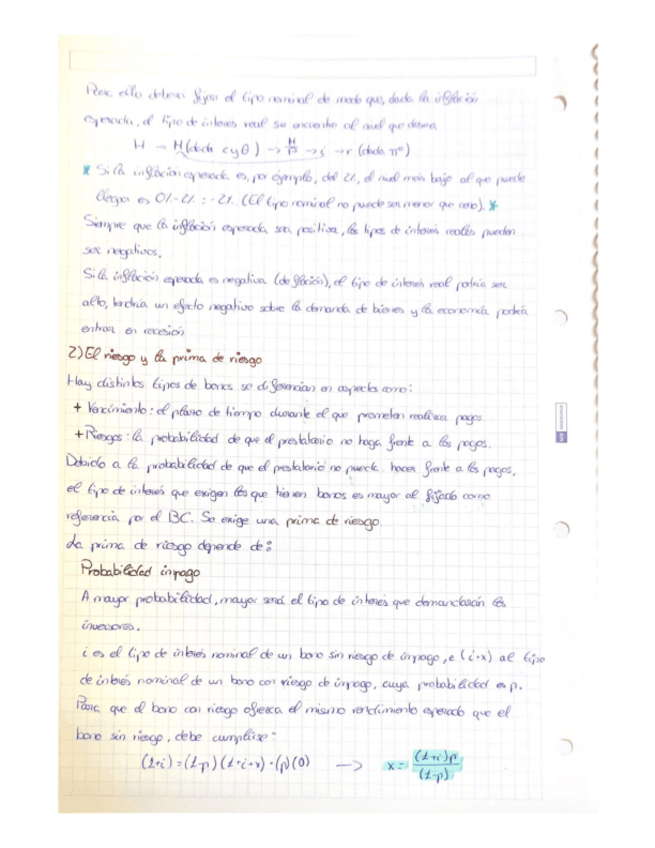 Para ello deberá fijar el tipo nominal de modo que, dada la inflación
esperada, el tipo de interés real se encuentre al nivel que desea.
H → M(dada c y θ) → M/P → i → r (dada πᵉ)
* Si la inflación esperada es, por ejemplo, del 2%, el nivel más bajo al que puede
llegar es 0%-2% = -2%. (El tipo nominal no puede ser menor que cero). *
Siempre que la inflación esperada sea positiva, los tipos de interés reales pueden
ser negativos.
Si la inflación esperada es negativa (deflación), el tipo de interés real podría ser
alto, tendría un efecto negativo sobre la demanda de bienes y la economía podría
entrar en recesión
2) El riesgo y la prima de riesgo
Hay distintos tipos de bonos se diferencian en aspectos como:
+ Vencimiento: el plazo de tiempo durante el que prometen realizar pagos.
+ Riesgos: la probabilidad de que el prestatario no haga frente a los pagos.
Debido a la probabilidad de que el prestatario no pueda hacer frente a los pagos,
el tipo de interés que exigen los que tienen bonos es mayor al fijado como
referencia por el BC. Se exige una prima de riesgo.
La prima de riesgo depende de:
Probabilidad impago
A mayor probabilidad, mayor será el tipo de interés que demandarán los
inversores.
i es el tipo de interés nominal de un bono sin riesgo de impago, e (i+x) al tipo
de interés nominal de un bono con riesgo de impago, cuya probabilidad es p.
Para que el bono con riesgo ofrezca el mismo rendimiento esperado que el
bono sin riesgo, debe cumplirse:
(1+i) = (1-p) (1+i+x) + (p)(0) → x = (1+i)p / (1-p)